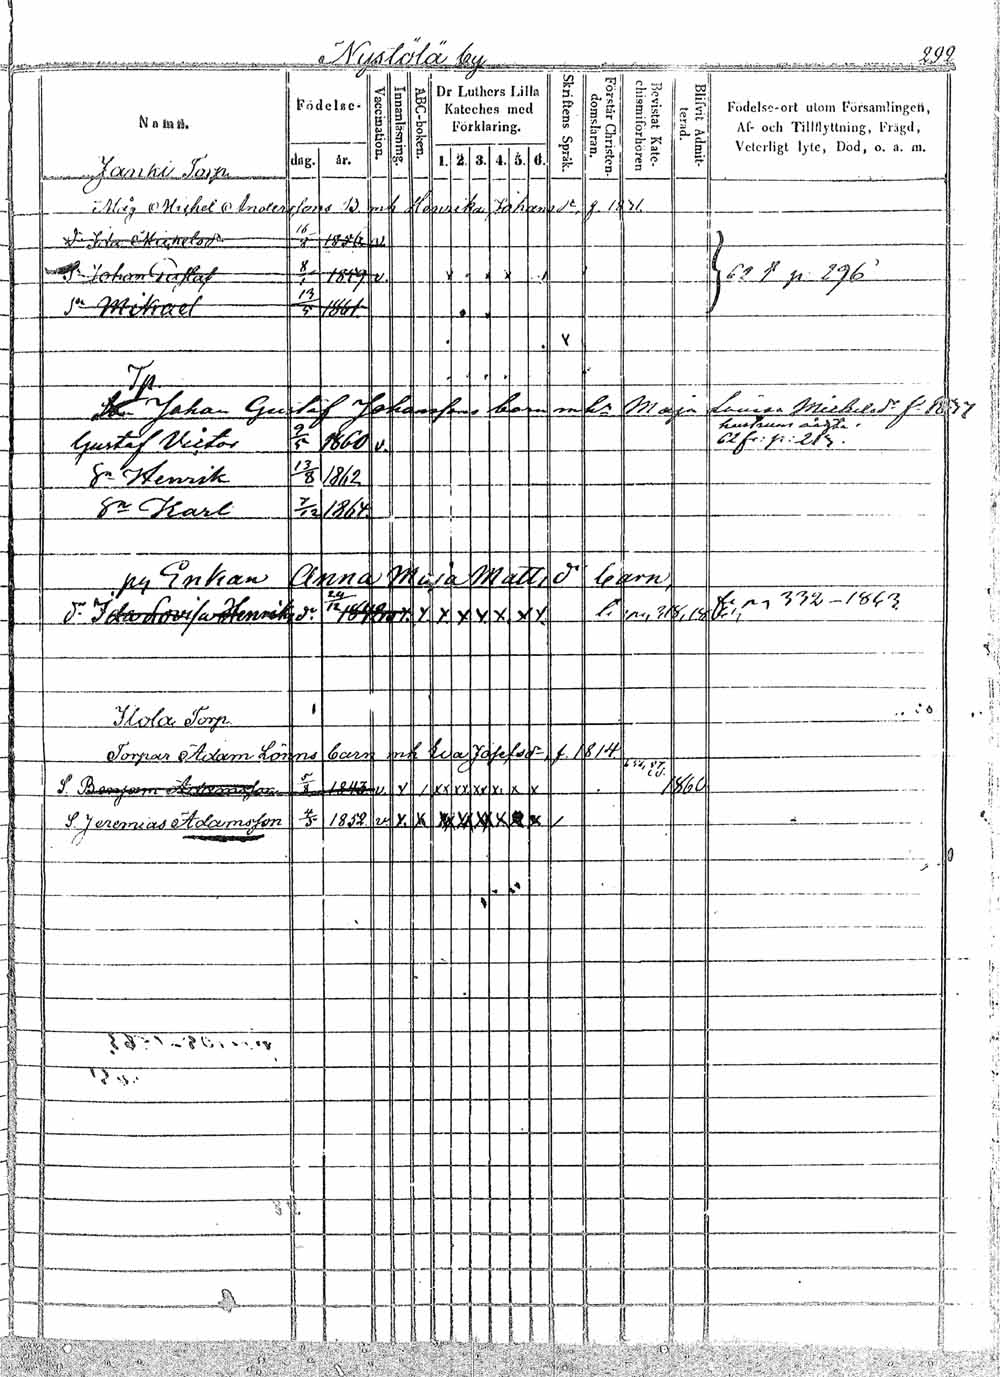 Nystölä by 292
Namn.
Födelse-
dag. år.
Vaccination.
Innanläsning.
ABC-boken.
Dr Luthers Lilla Kateches med Förklaring.
1. 2. 3. 4. 5. 6.
Skriftens Språk.
Förstår Christendomsläran.
Bevistat Katechismiförhören
Blifvit Admitterad.
Födelse-ort utom Församlingen,
Af- och Tillflyttning, Frägd,
Veterligt lyte, Död, o. a. m.
Janki Torp
Michel Anderssons B. mh Henrika Johans dr, f 1821
dr Ida Michelsdr 16/8 v.
Sn Johan Gustaf 8/1 1859 v. 62 f p. 296
Sn Mikael 13/5 1861
Tp.
Johan Gustaf Johanssons barn mh: Maja Lovisa Michelsdr f. 1837
Gustaf Victor 9/5 1860 v. 62 f: p: 213.
Sn Henrik 13/8 1862
Sn Karl 7/12 1864
pg Enkan Anna Maja Matts dr barn,
dr Ida Lovisa Henriks dr 24/12 x x x x x x x 332-1863
Ilola Torp
Torpar Adam Lönns barn mh Eva Josefs dr, f. 1814
S. Benjam Adamsson 5/8 1843 v. x / xx xx xx x x x 1860
S. Jeremias Adamsson 4/5 1852 v x x x x x x x x /